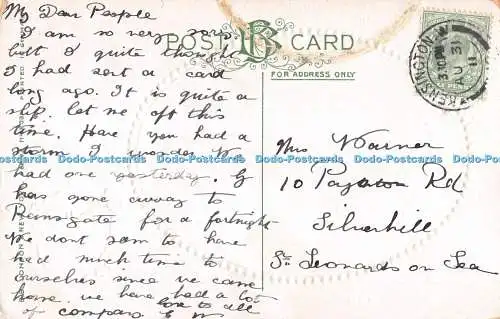 My Dear People
I am so very sorry
but I quite thought
I had sent a card
long ago. It is quite a
slip. let me off this
time. Have you had a
storm I wonder We
had one yesterday. G
has gone away to
Ramsgate for a fortnight
We dont seem to have
had much time to
ourselves since we came
home. we have had a lot
of company love to all
POST CARD
FOR ADDRESS ONLY
KENSINGTON
3.30 PM
11
Mrs Warner
10 Paynton Rd
Silverhill
St Leonards on Sea
Dodo-Postcards Dodo-Postcards Dodo-Postcards Dodo-Postcards Dodo-Postcards